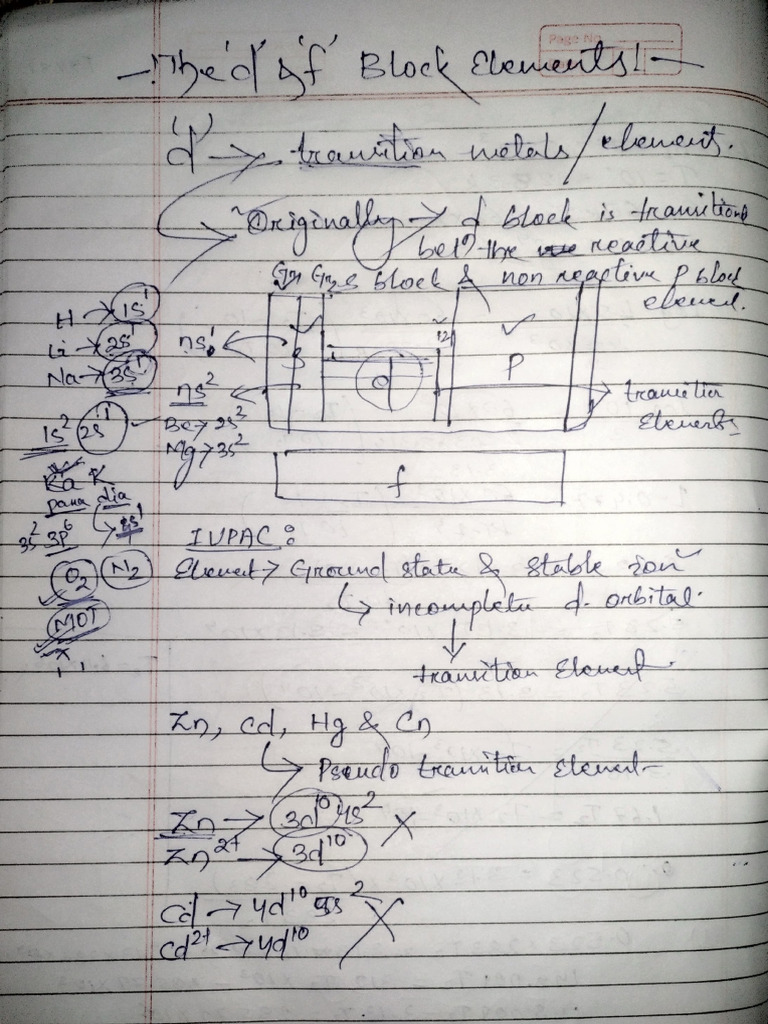 Page No
The 'd' & 'f' Block Elements!
'd' → transition metals/element.
Originally → d block is transitions
betn the reactive
Gr1 Gr2 s block & non reactive p block
element.
H → 1s1
Li → 2s1
Na → 3s1
1s2 2s1
K
para dia
3s2 3p6
O2 N2
MOT
ns1
ns2
Be → 2s2
Mg → 3s2
s
d
12
p
f
transition
Elements
IUPAC :
Element → Ground state & stable ion
↳ incomplete d. orbital.
↓
transition Element
Zn, Cd, Hg & Cn
↳ Pseudo transition Element
Zn → 3d10 4s2
Zn2+ → 3d10
Cd → 4d10 5s2
Cd2+ → 4d10